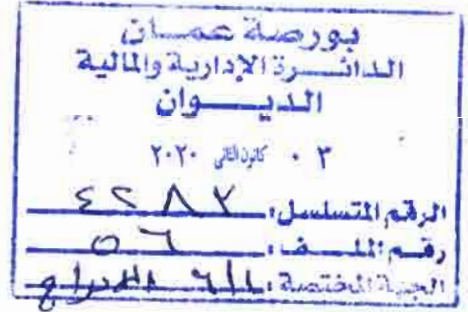 بورصة عمــان
الدائــرة الإدارية والمالية
الديــوان
٠٣ كانون الثاني ٢٠٢٠
الرقم المتسلسل:
رقم الملــف: ٥٦
الجهة المختصة: الإدراج